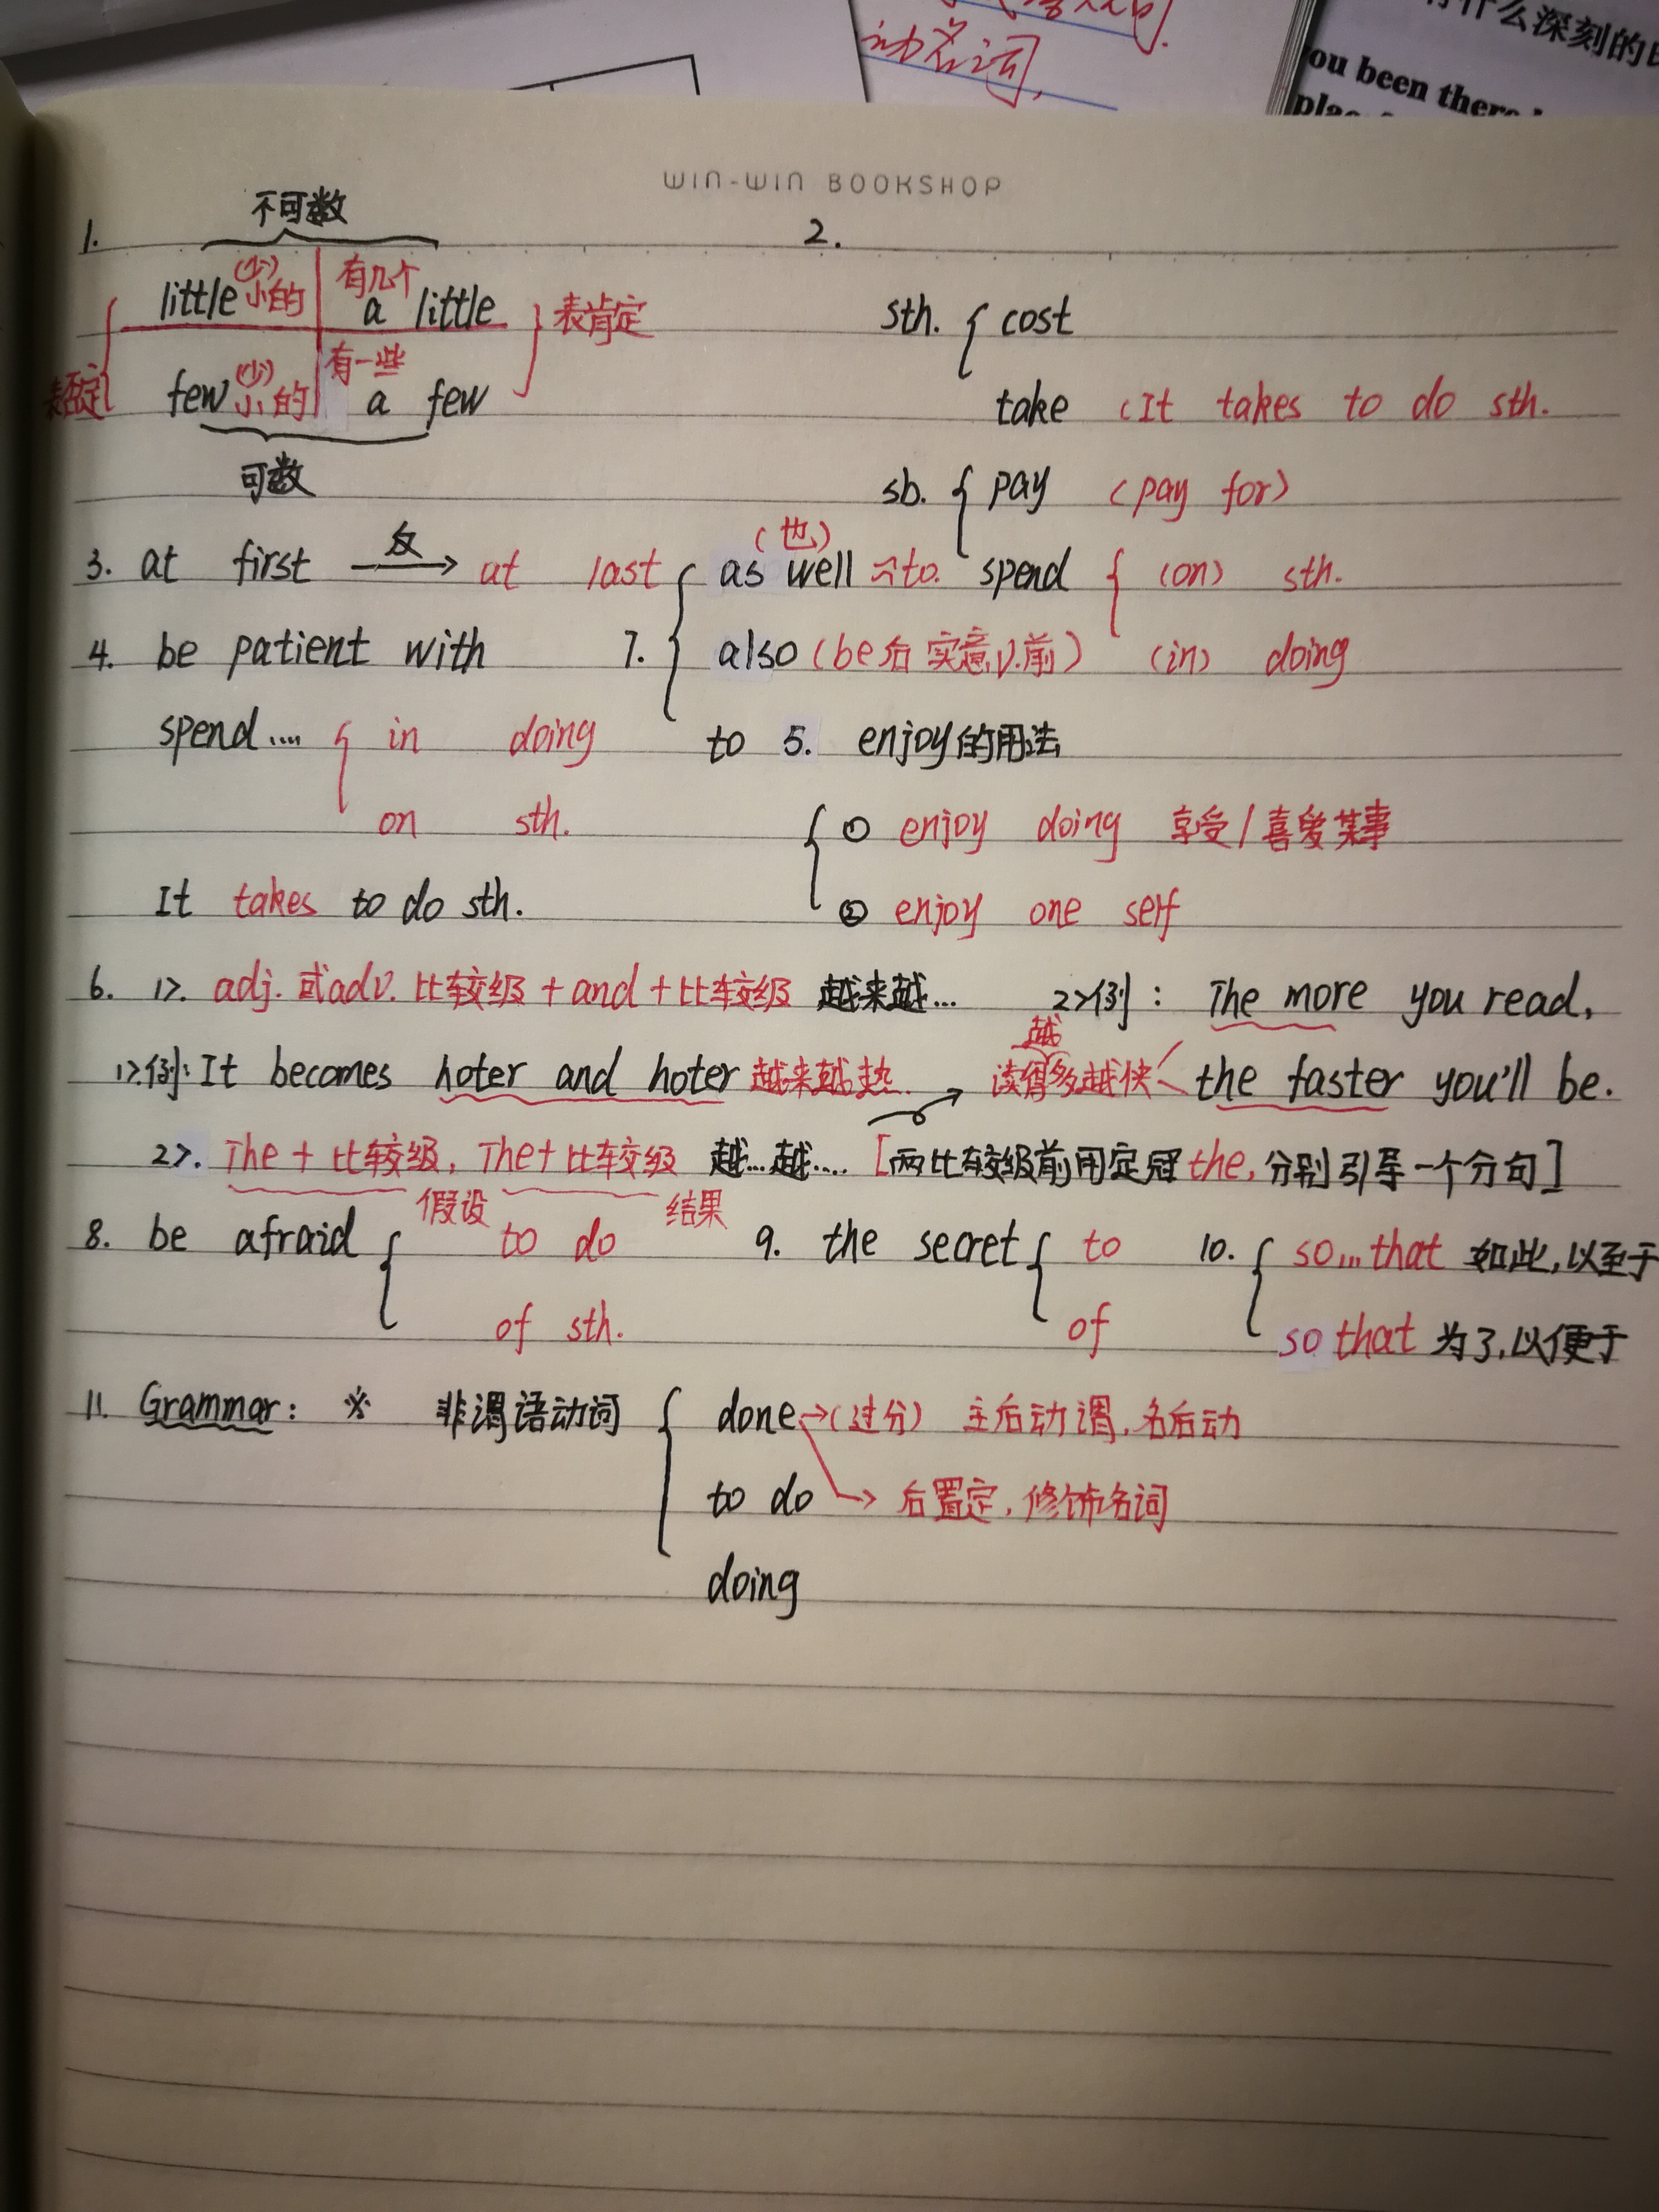 动名词,
什么深刻的
ou been there
WIN-WIN BOOKSHOP
不可数
1.
2.
little (少)小的 有几个 a little 表肯定
sth. { cost
表否定 few (少)小的 有一些 a few
take (It takes to do sth.
可数
sb. { pay (pay for)
3. at first 反→ at last
(也)
as well =to. spend { (on) sth.
4. be patient with 7. { also (be后 实意v.前) (in) doing
spend.... { in doing to 5. enjoy的用法
on sth. { ① enjoy doing 享受/喜爱某事
It takes to do sth. ② enjoy one self
6. 1>. adj.或adv. 比较级+and+比较级 越来越... 2>例: The more you read,
1>例: It becomes hoter and hoter 越来越热 → 读得越多越快 < the faster you'll be.
2>. The + 比较级, The+比较级 越...越.... [两比较级前用定冠the,分别引导一个分句]
假设 结果
8. be afraid { to do 9. the secret { to 10. { so...that 如此,以至于
of sth. of so that 为了,以便于
11. Grammar: ※ 非谓语动词 { done→(过分) 主后动谓,名后动
to do → 后置定,修饰名词
doing